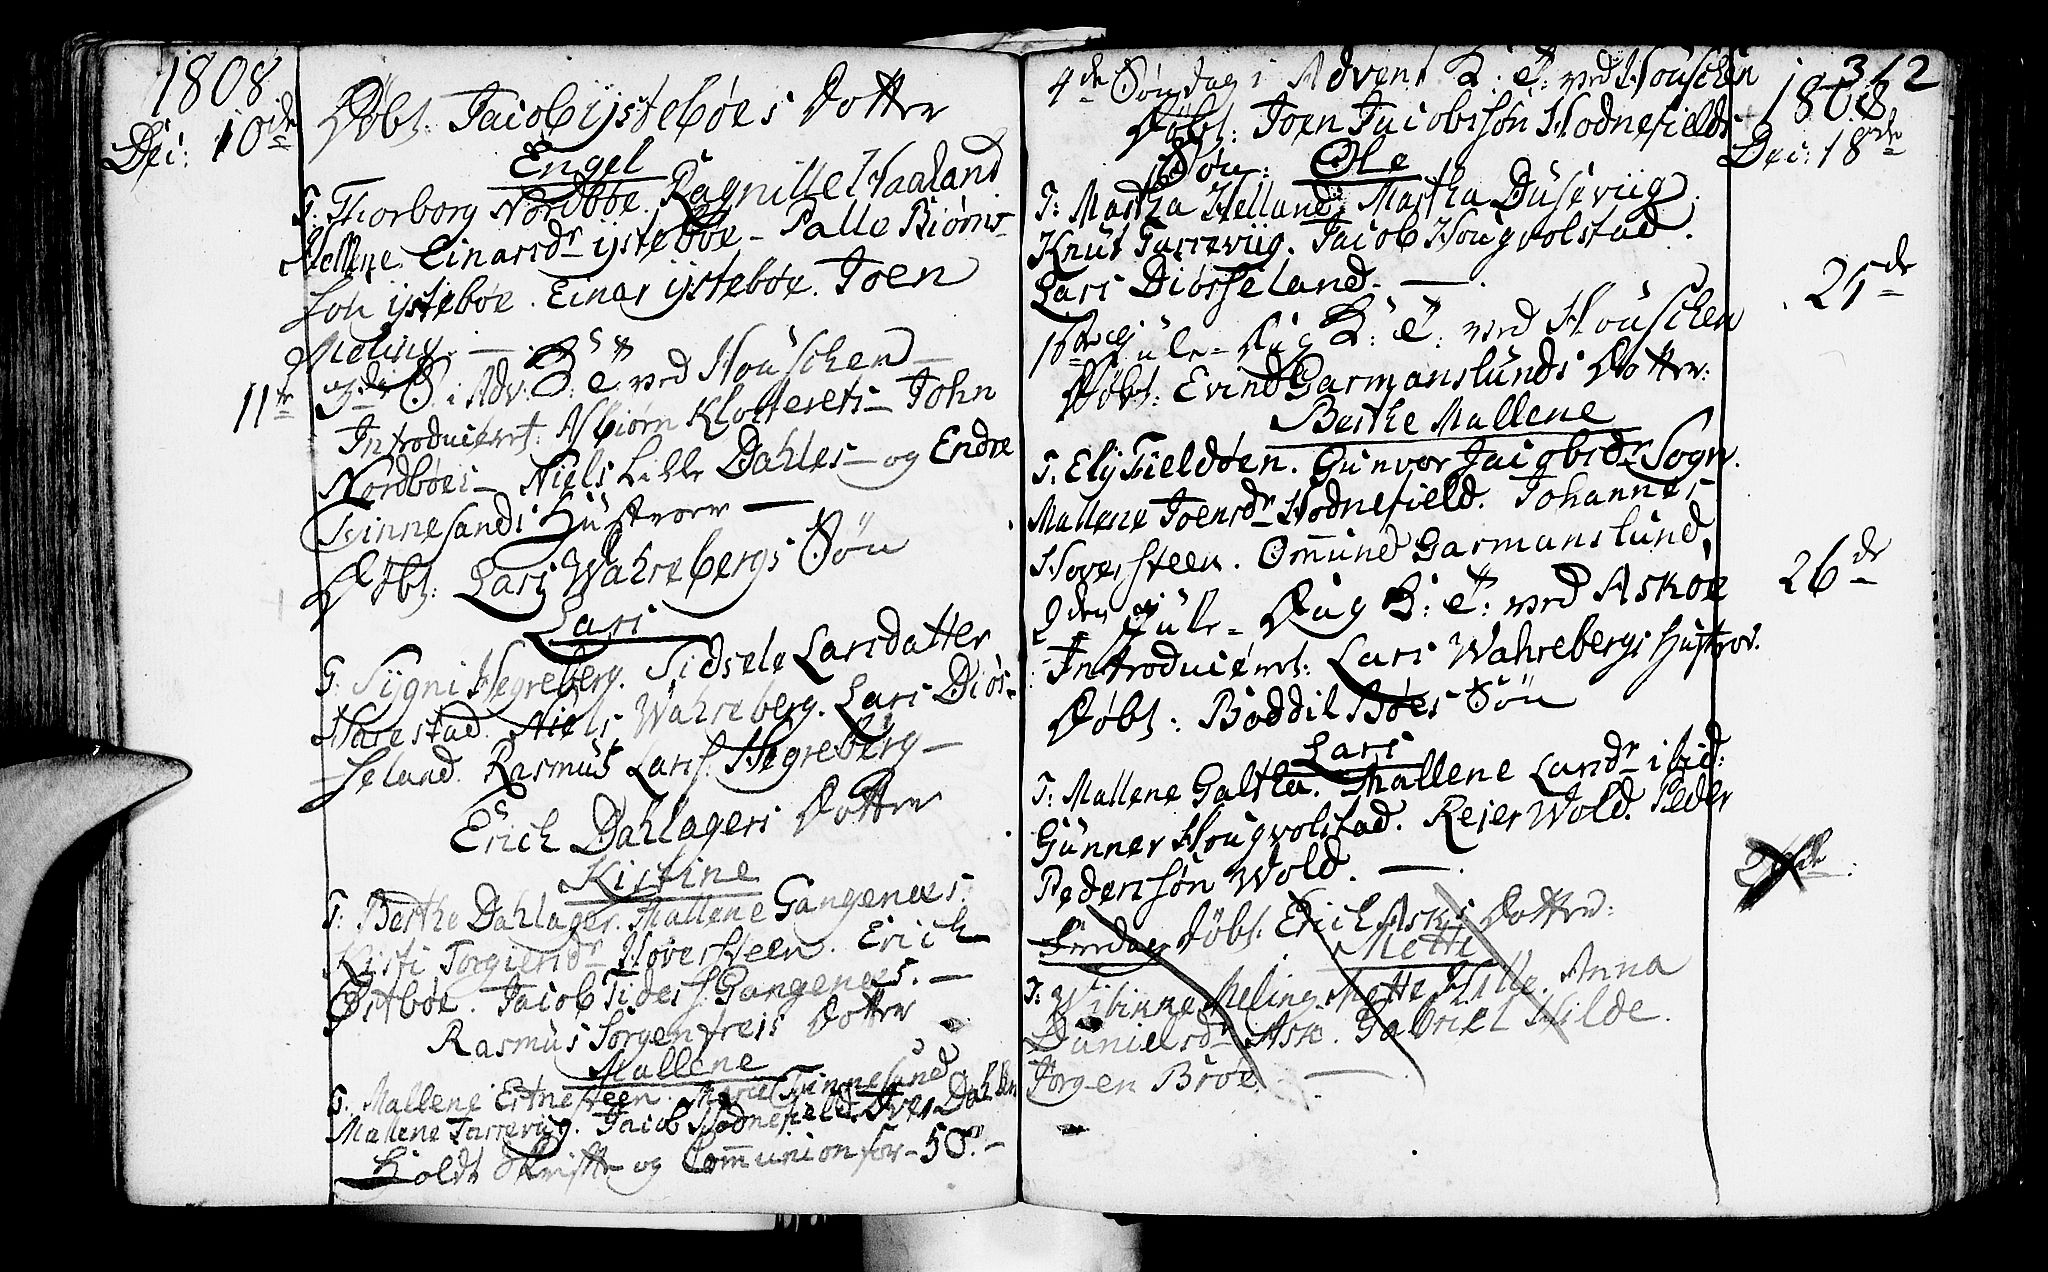 1808
Dec: 10de
Døbt. Jacob ÿstebøes Dotter
Engel
T. Thorborg Nordbøe. Ragnille Haaland
Hellne Einarsdr ÿstebøe - Palle Biørns-
son ÿstebøe. Einer ÿstebøe. Joen
Meling. —
11te
3die S. i Adv: B: et T: ved Houschen —
Introduceret: Asbiørn Klosterets - John
Nordbøes - Niels Lille Dahles - og Endre
Svinnesands Hustroer —
Døbt: Lars Wahrebergs Søn
Lars
T: Sÿgni Hegreberg. Sidsele Larsdatter
Harestad. Niels Wahreberg. Lars Diøs-
seland. Rasmus Lars. Hegreberg —
Erich Dahlagers Dotter
Kistine
T: Berthe Dahlager. Mallene Gangenæs.
Kisti Torgiersdr Hoversteen. Erich
Østbøe. Jacob Tiders. Gangenæs. —
Rasmus Sorgenfreis Dotter
Mallene
T. Mallene Ertnesteen. Marie Svinnesund
Mallene Tarreviig. Jacob Hodnefield. Iver Dahlen
Holdt Skrifte og Communion for - 50. —
312
4de Søndag i Advent B: et T: ved Houschen
1808
Dec: 18de
Døbt: Joen Jacobssøn Hodnefields
Søn: Ole
T: Martha Helland. Martha Duseviig
Knut Tarreviig. Jacob Hougvolstad.
Lars Diøsseland. —
25de
1ste Jule-Dag B: et T: ved Houschen
Døbt: Evind Garmanslunds Dotter:
Berthe Mallene
T. Elÿ Fieldøen. Gunvor Jacobsdr Sogn.
Mallene Joensdr Hodnefield. Johannes
Hoversteen. Ommund Garmanslund,
26de
2den Jule-Dag B: et T: ved Askøe
Introduceret: Lars Wahrebergs Hustroe.
Døbt: Boddil Bøes Søn
Lars
T: Mallene Galtha. Mallene Larsdr ibid:
Gunner Hougvolstad. Reier Wold. Peder
Pederssøn Wold. —
Fredag Døbt. Erich Asks Dotter:
Mette
T: Wibinne Meling. Mette Hille. Anna
Danielsdr Ask. Gabriel Hilde.
Jørgen Broe. —